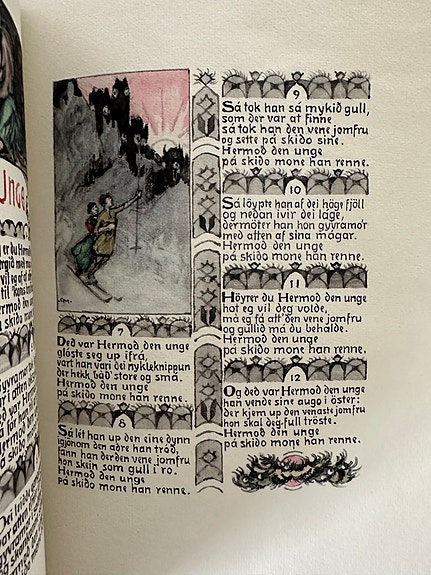 Unge
7
Ded var Hermod den unge
gløste seg up ifrå,
vart han vari dei nykleknippun
der hekk båd' store og små.
Hermod den unge
på skido mone han renne.
8
Så lét han up den eine dynn
igjønom den adre han tród,
fann han der den vene jomfru
hon skein som gull i ro.
Hermod den unge
på skido mone han renne.
9
Så tok han så mykið gull,
som der var at finne
så tok han den vene jomfru
og sette på skido sine.
Hermod den unge
på skido mone han renne.
10
Så löypte han af dei höge fjöll
og nedan ivir dei låge,
dermöter han hon gyvramo'r
med atten af sina mågar.
Hermod den unge
på skido mone han renne.
11
Höyrer du Hermod den unge
hot eg vil deg volde,
må eg få att den vene jomfru
og gullid må du behalde.
Hermod den unge
på skido mone han renne.
12
Og ded var Hermod den unge
han vende sine augo i öster:
der kjem up den venaste jomfru
hon skal deg full tröste.
Hermod den unge
på skido mone han renne.